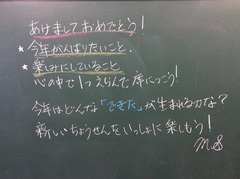 あけましておめでとう!
★今年がんばりたいこと.
★楽しみにしていること
心の中で1つえらんで席につこう!
今年はどんな「できた」が生まれるかな?
新しいちょうせんをいっしょに楽しもう!
M.S